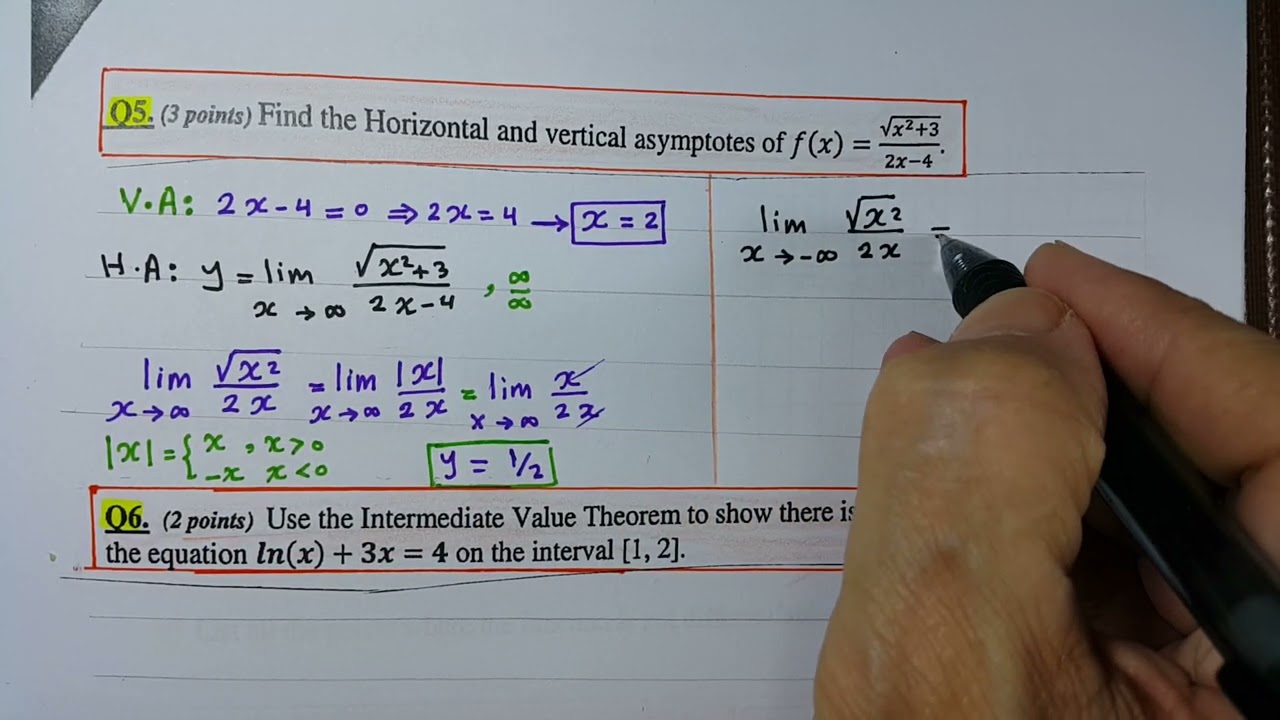 Q5. (3 points) Find the Horizontal and vertical asymptotes of f(x) = √x²+3 / 2x−4.
V.A: 2x-4=0 ⇒ 2x=4 → x = 2
H.A: y = lim x→∞ √x²+3 / 2x-4 , ∞/∞
lim x→∞ √x² / 2x = lim x→∞ |x| / 2x = lim x→∞ x / 2x
|x| = { x , x>0
-x x<0
y = 1/2
lim x→-∞ √x² / 2x =
Q6. (2 points) Use the Intermediate Value Theorem to show there is
the equation ln(x) + 3x = 4 on the interval [1, 2].